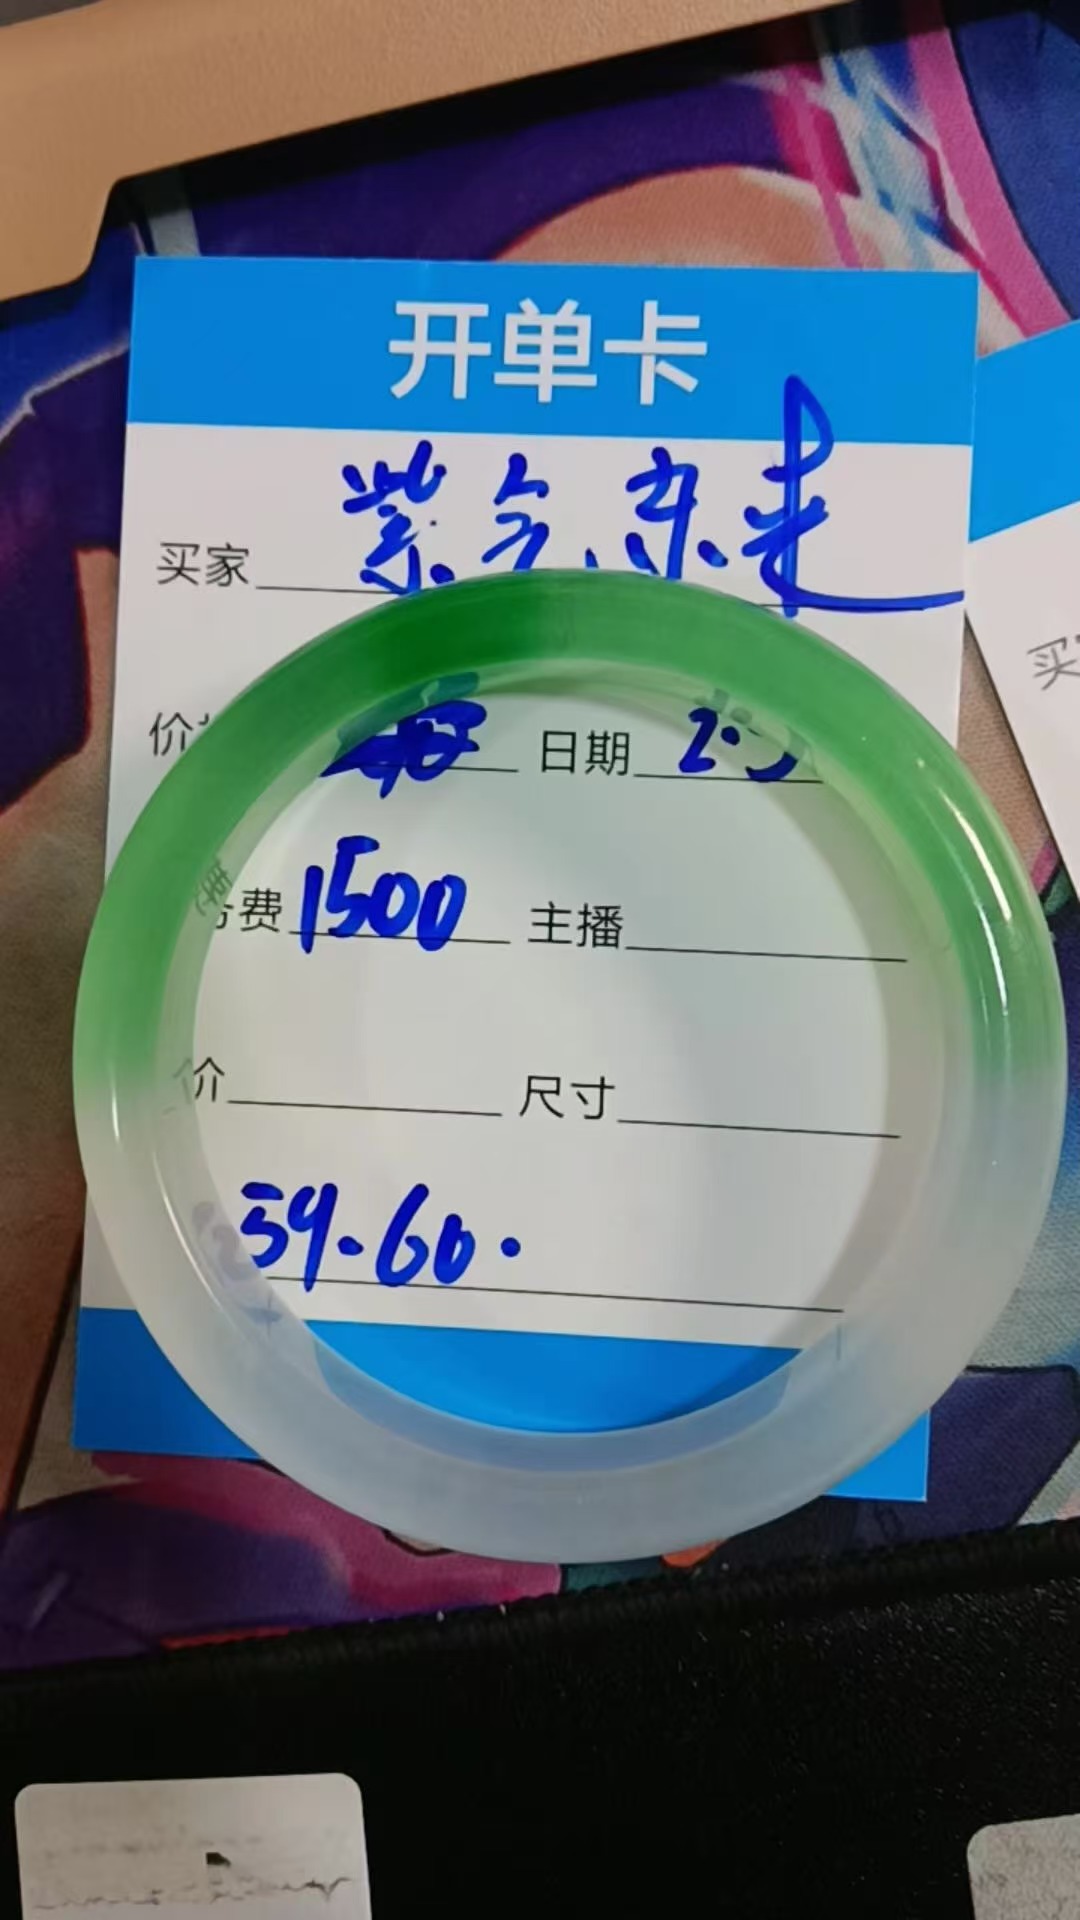 开单卡
买家 紫气东来
价 日期 2.3
费 1500 主播
价 尺寸
59.60.
买